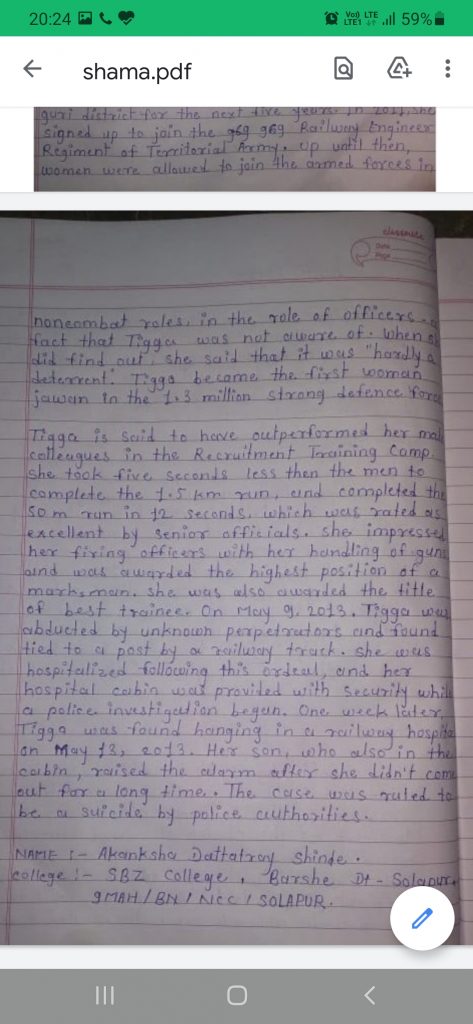 20:24
Vo)) LTE
LTE1
59%
shama.pdf
guri district for the next five years. In 2011, she
signed up to join the 969 Railway Engineer
Regiment of Territorial Army. Up until then,
women were allowed to join the armed forces in
classmate
Date
Page
noncombat roles, in the role of officers
fact that Tigga was not aware of. When
did find out, she said that it was "hardly a
deterrent. Tigga became the first woman
jawan in the 1.3 million strong defence force
Tigga is said to have outperformed her male
colleagues in the Recruitment Training Camp
She took five seconds less then the men to
complete the 1.5 km run, and completed the
50 m run in 12 seconds, which was rated as
excellent by senior officials. she impressed
her firing officers with her handling of guns
and was awarded the highest position of a
marksman. she was also awarded the title
of best trainee. On May 9, 2013, Tigga was
abducted by unknown perpetrators and found
tied to a post by a railway track. she was
hospitalized following this ordeal, and her
hospital cabin was provided with security while
a police investigation began. One week later,
Tigga was found hanging in a railway hospita
on May 13, 2013. Her son, who also in the
cabin, raised the alarm after she didn't come
out for a long time. The case was ruled to
be a suicide by police authorities.
NAME :- Akanksha Dattatray Shinde.
college :- SBZ College, Barshe Dt - Solapur.
9MAH / BN / NCC / SOLAPUR.